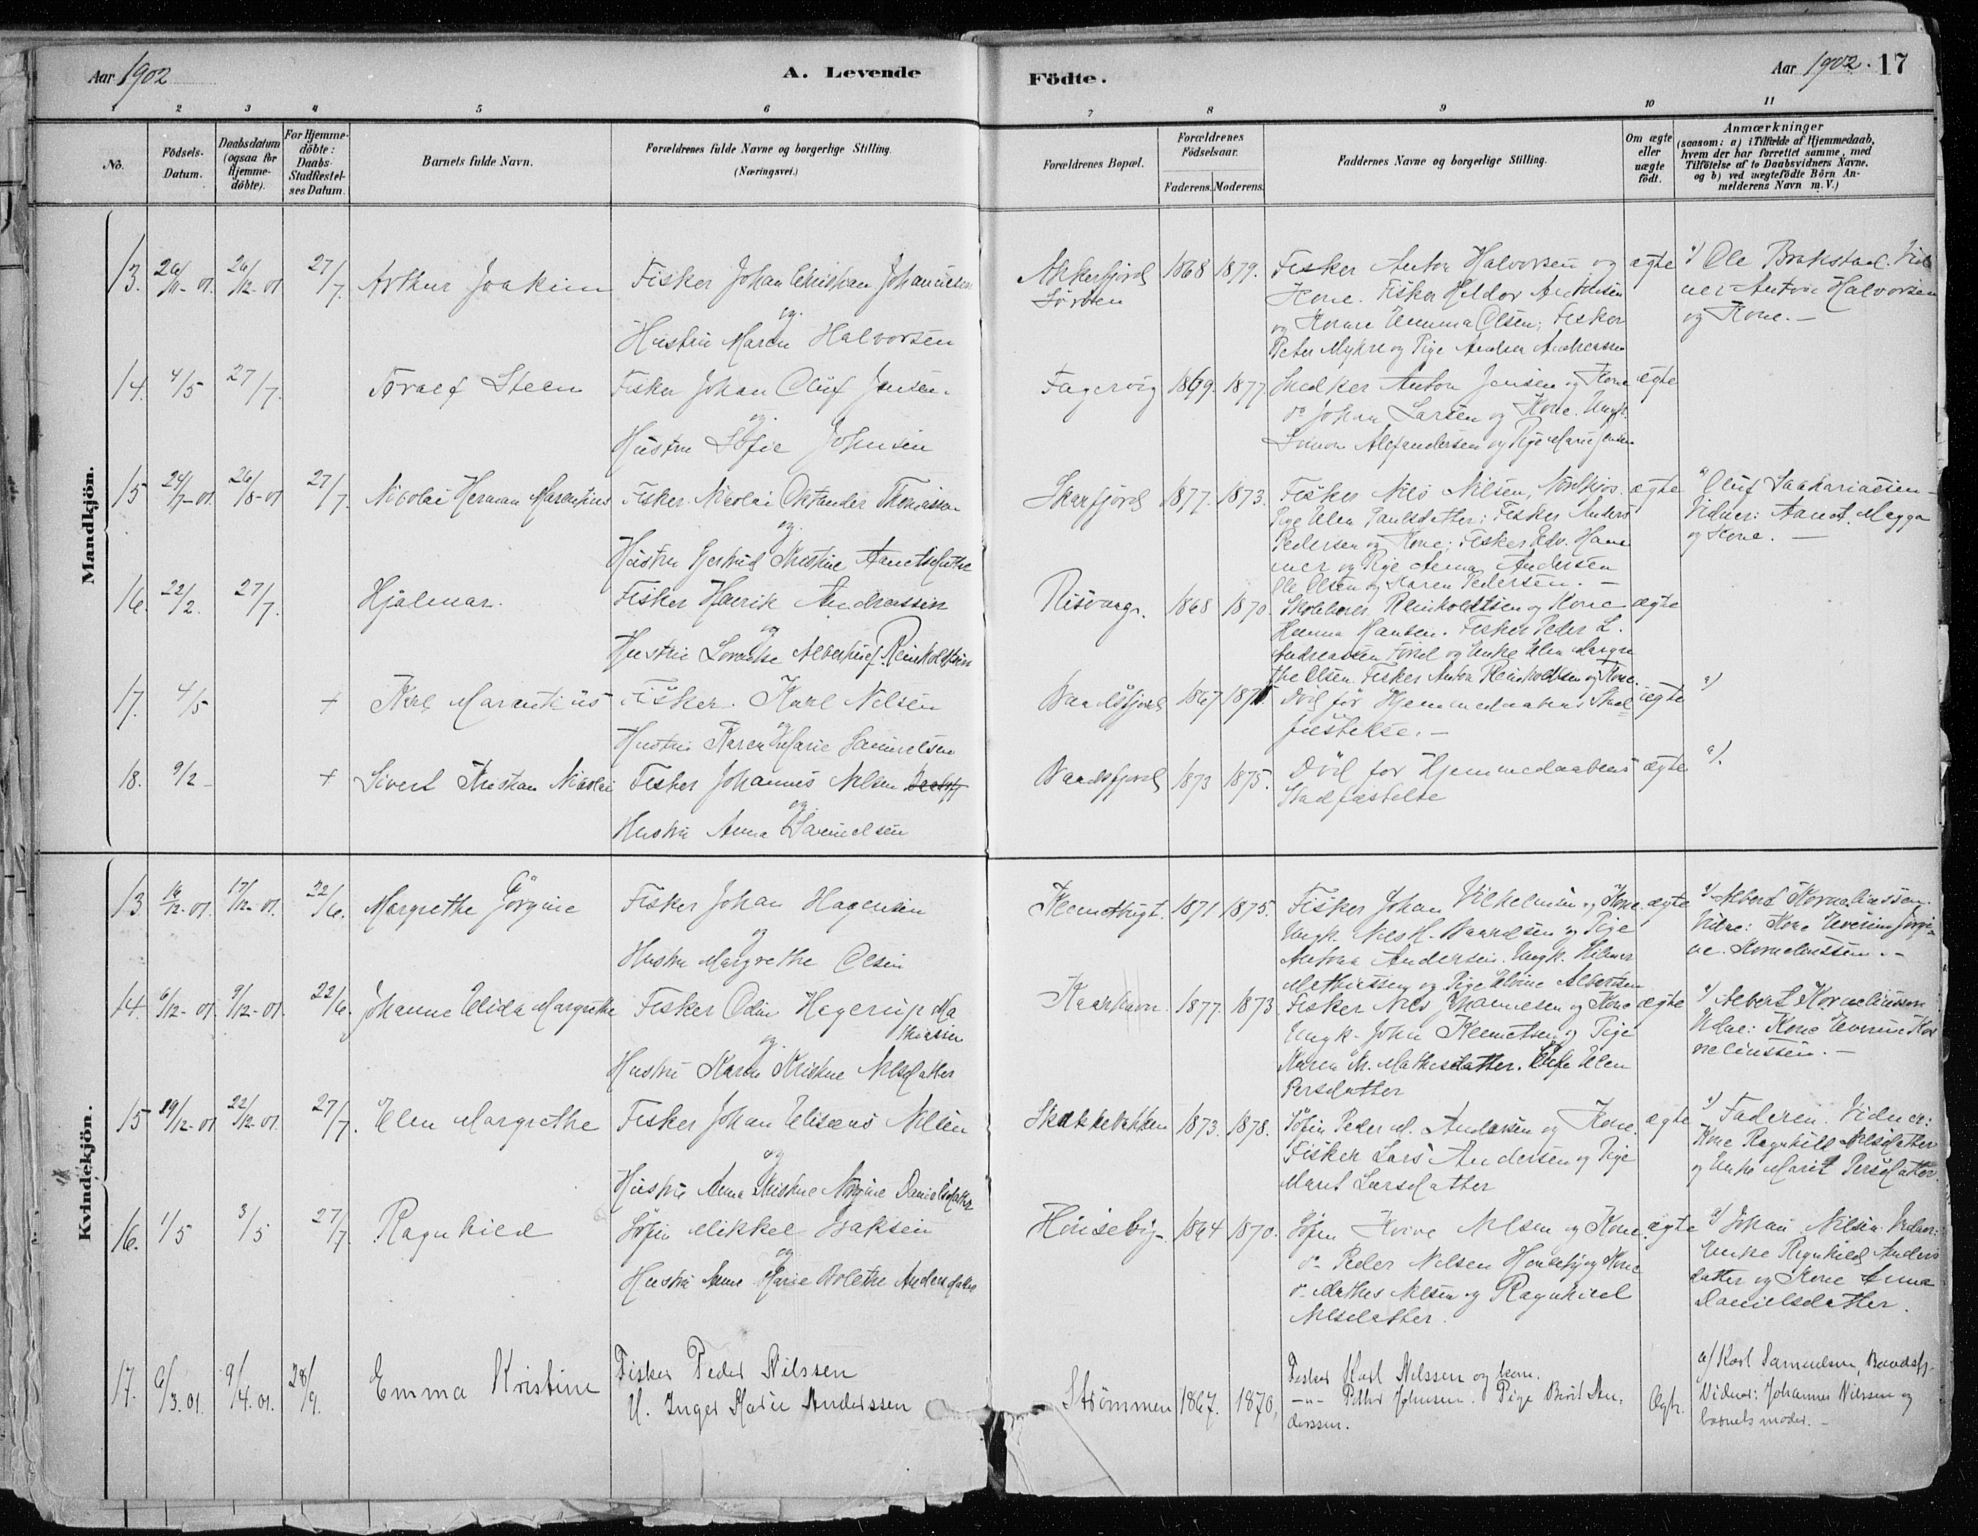 Aar 1902
A. Levende
Födte.
Aar 1902. 17
1 2 3 4 5 6 7 8 9 10 11
No.
Födsels-
Datum.
Daabsdatum
(ogsaa for
Hjemme-
döbte).
For Hjemme-
döbte:
Daabs-
Stadfestel-
ses Datum.
Barnets fulde Navn.
Forældrenes fulde Navne og borgerlige Stilling.
(Næringsvei.)
Forældrenes Bopæl.
Forældrenes
Födselsaar.
Faderens. Moderens.
Faddernes Navne og borgerlige Stilling.
Om ægte
eller
uægte
födt.
Anmærkninger
(saasom: a) i Tilfælde af Hjemmedaab,
hvem der har forrettet samme, med
Tilföielse af to Daabsvidners Navne,
og b) ved uægtefödte Börn An-
melderens Navn m. V.)
Mandkjön.
13. 26/11-01. 26/12-01 27/7. Arthur Joakim Fisker Johan Christian Johannesen
og
Hustru Maren Halvorsen
Akkerfjord
Sørøen
1868 1879.
Fisker Anton Halvorsen og
Kone. Fisker Heldor Antonsen
og Kone Emma Olsen; Fisker
Peter Mykre og Pige Andrea Andreassen
ægte
a) Ole Brakstad. Vid
ner Anton Halvorsen
og Kone. –
14. 4/5 27/7. Toralf Steen Fisker Johan Oluf Jensen.
og.
Hustru Sofie Johnsen
Fagervig 1869. 1877.
Snedker Anton Jensen og Kone
do Johan Larsen og Kone. Ungk.
Simon Alexandersen og Pige Marie Jensen
ægte
15 24/7-01. 26/8-01 27/7. Nicolai Herman Marentius Fisker Nicolai Oktander Thomassen
og
Hustru Gjertrud Kristine Aanetsdatter
Skarfjord 1877. 1873.
Fisker Nils Nilsen,
Pige Elen Paulsdatter; Fisker Anders
Pedersen og Kone; Fisker Edv. Ham
mer og Pige Anna Andersen
Ole Olsen og Karen Pedersen. –
ægte
a) Oluf Sakariassen –
Vidner: Aanet Megga
og Kone. –
16. 22/2. 27/7. Hjalmar. Fisker Henrik Andreassen
og
Hustru Lorentse Albertine Reinholdtsen
Risvaag. 1868 1870.
Reinholdtsen og Kone
Hanna Hansen. Fisker Peder L.
Andreassen og Enke Elen Margre
the Olsen. Fisker Anton Reinholdtsen og Kone.
ægte
17. 4/5 + Karl Marentius Fisker. Karl Nilsen
og
Hustru Karen Marie Samuelsen
Baadsfjord 1867
Död før Hjemmedaabens Stad
fæstelse. –
ægte a)
18. 9/2 – + Sivert Kristian Nicolai Fisker Johannes Nilsen
og.
Hustru Anna Samuelsen
Baadsfjord 1873 1875.
Död før Hjemmedaabens
Stadfæstelse
ægte a).
Kvindekjön.
13. 16/12-01. 17/12-01. 22/6. Margrethe Jörgine Fisker Johan Hagensen
og
Hustru Margrethe Olsen
Klemetvigt. 1871 1875.
Fisker Johan Vilhelmsen og Kone.
Ungk. Nils H. Baardsen og Pige
Antona Andersen. Ungk. Hilmer
Mathiessen og Pige Elvine Albertsen
ægte
a) Albert Korneliussen.
Vidne: Kone Everine Jørgi-
ne Korneliussen. –
14. 6/12-01. 9/12-01. 22/6. Johanne Elida Margrethe Fisker Odin Hagerup Ma
thiassen
og.
Hustru Karen Kristine Nilsdatter
Kaarhavn. 1877. 1873
Fisker Nils Johannesen og Kone
Ungk. John Klemetsen og Pige
Karen M. Mathisdatter. Pige Elen
Persdatter
ægte
a) Albert Korneliussen
Vidne: Kone Everine Kor
neliussen. –
15 19/12-01 22/12-01. 27/7. Elen Margrethe Fisker Johan Eliseus Nilsen
og
Hustru Anna Kristine Nørgine Danielsdatter
Skakkebakken 1873. 1878.
Söfin Peder M. Andersen og Kone.
Fisker Lars Andersen og Pige
Marit Larsdatter
ægte
a) Faderen. Vidner:
Kone Ragnhild Nilsdatter
og Enke Marit Persdatter.
16. 1/5 3/5 27/7 Ragnhild Söfin Mikkel Isaksen
og
Hustru Anne Marie Bolethe Andersdatter
Hönseby – 1864 1870.
Söfin Nilsen og Kone.
do Peder Nilsen Hönseby og Kone
do Mathis Nilsen og Ragnhild
Nilsdatter.
ægte
a) Johan Nilsen. Vidner:
Enke Ragnhild Anders
datter og Kone Anna
Danielsdatter.
17. 6/3.01. 9/4.01. 28/9. Emma Kristine Fisker Peder Nilssen
H. Inger Marie Anderssen
Strömmen 1867. 1870,
Fisker Karl Nilssen og kone.
–"– Petter Johnsen. Pige Berit An-
derssen.
Ægte.
a/ Karl Samuelsen, Baadsfj.
Vidner: Johannes Nilssen og
barnets moder. –